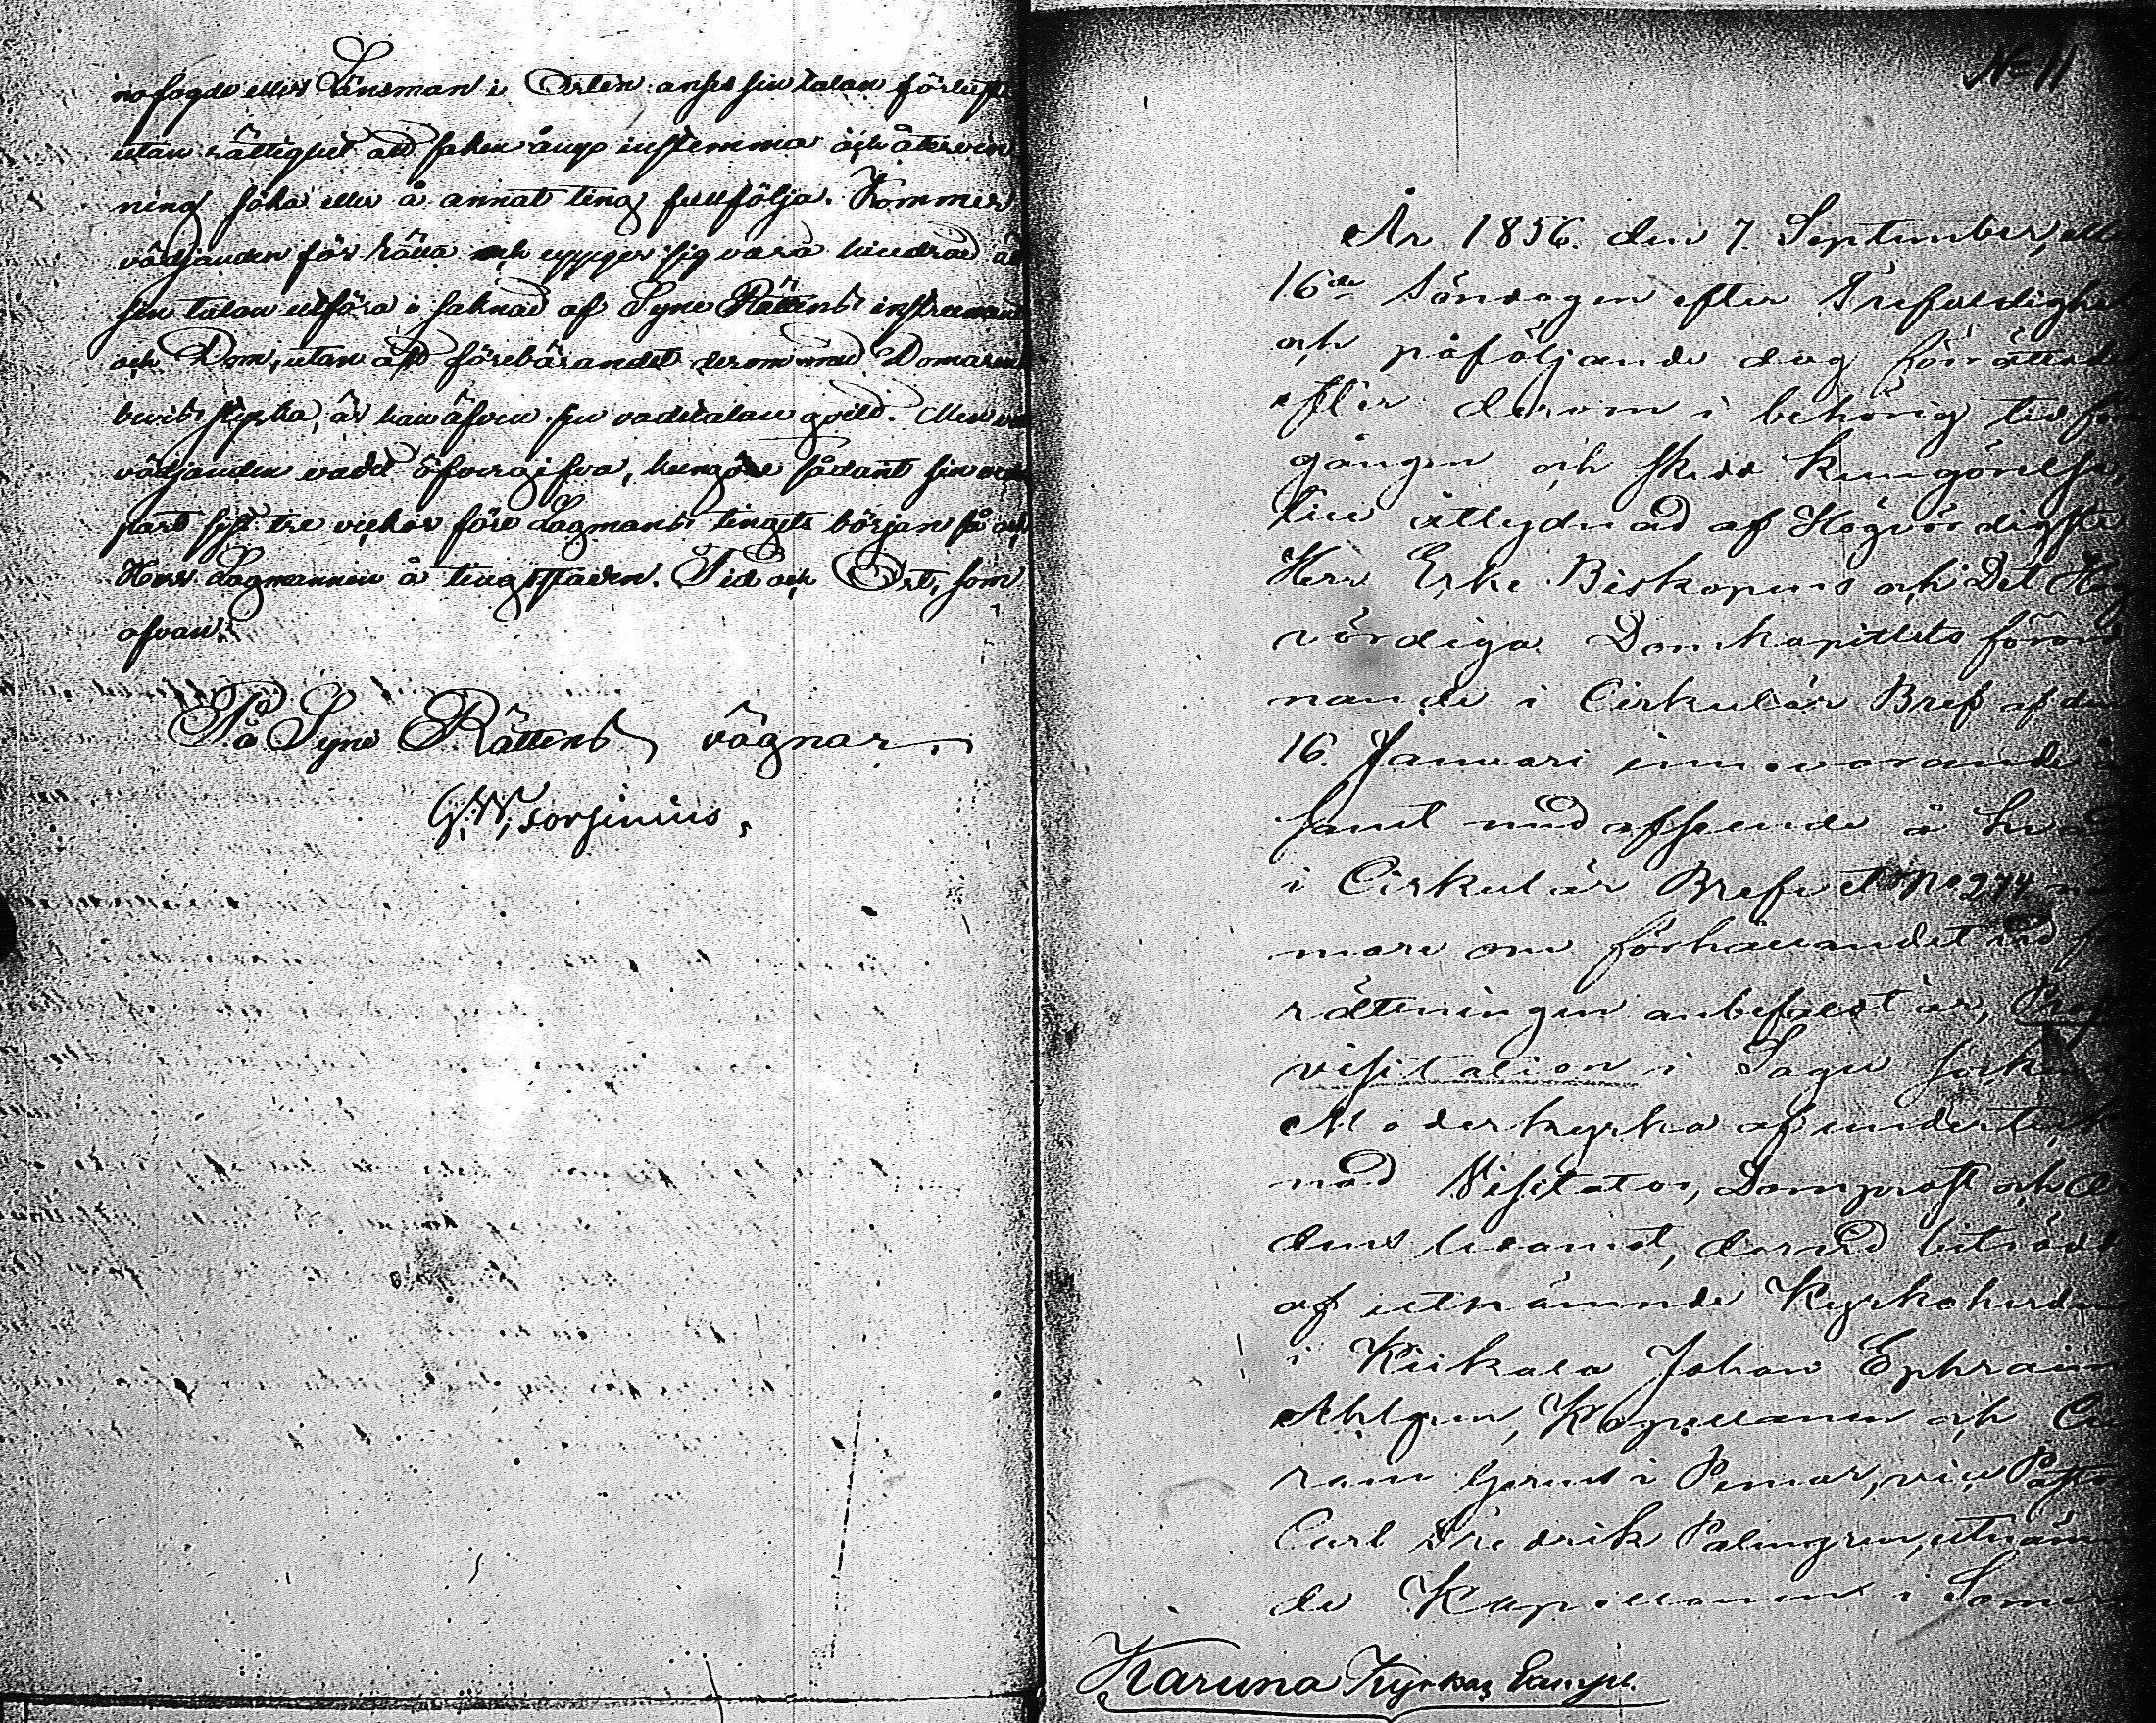 nofogde eller Länsman i Orten anses sin talan förlustig
utan rättighet att saken ånyo instemma och återvin
ning söka eller å annat ting fullfölja. Kommer
vädjanden för rätta och uppger sig vara hindrad att
sin talan utföra i saknad af Syne Rättens instrument
och Dom, utan att förebärandet derom med Domarens
bevis styrka, är han äfven sin vadetalan qvitt. Men vill
vädjanden vadet öfvergifva, kungöre sådant sin veder
part sist tre veckor före Lagmans tingets början så ock
Herr Lagmannen å tingsstaden. Tid och Ort, som
ofvan.
På Syne Rättens vägnar
G. W.
No 11
År 1856. den 7 September, eller
16de Söndagen efter Trefaldighet
och påföljande dag förrättades
efter derom i behörig tid för
gången och skedd kungörelse,
till åtlydnad af Högvördigste
Herr Erke Biskopens och Det Hög
vördiga Domkapitlets förord
nande i Cirkulär Bref af den
16. Januari innevarande å
samt med afseende å hvad
i Cirkulär Brefvet No 274 när
mare om förhållandet vid för
rättningen anbefaldt är, Prost
visitation i Sagu Sockens
Moderkyrka af underteck
nad Visitator, Domprost och
dens ledamot, dervid biträdd
af utnämnde Kyrkoherden
i Kiikala Johan Ephraim
Ahlgren, Kapellanen och Cu
ram Gerens i Pemar, vice Pastor
Carl Fredrik Palmgren, utnämn
de Kapellanen i Somero
Karuna Kyrkas Exempl.